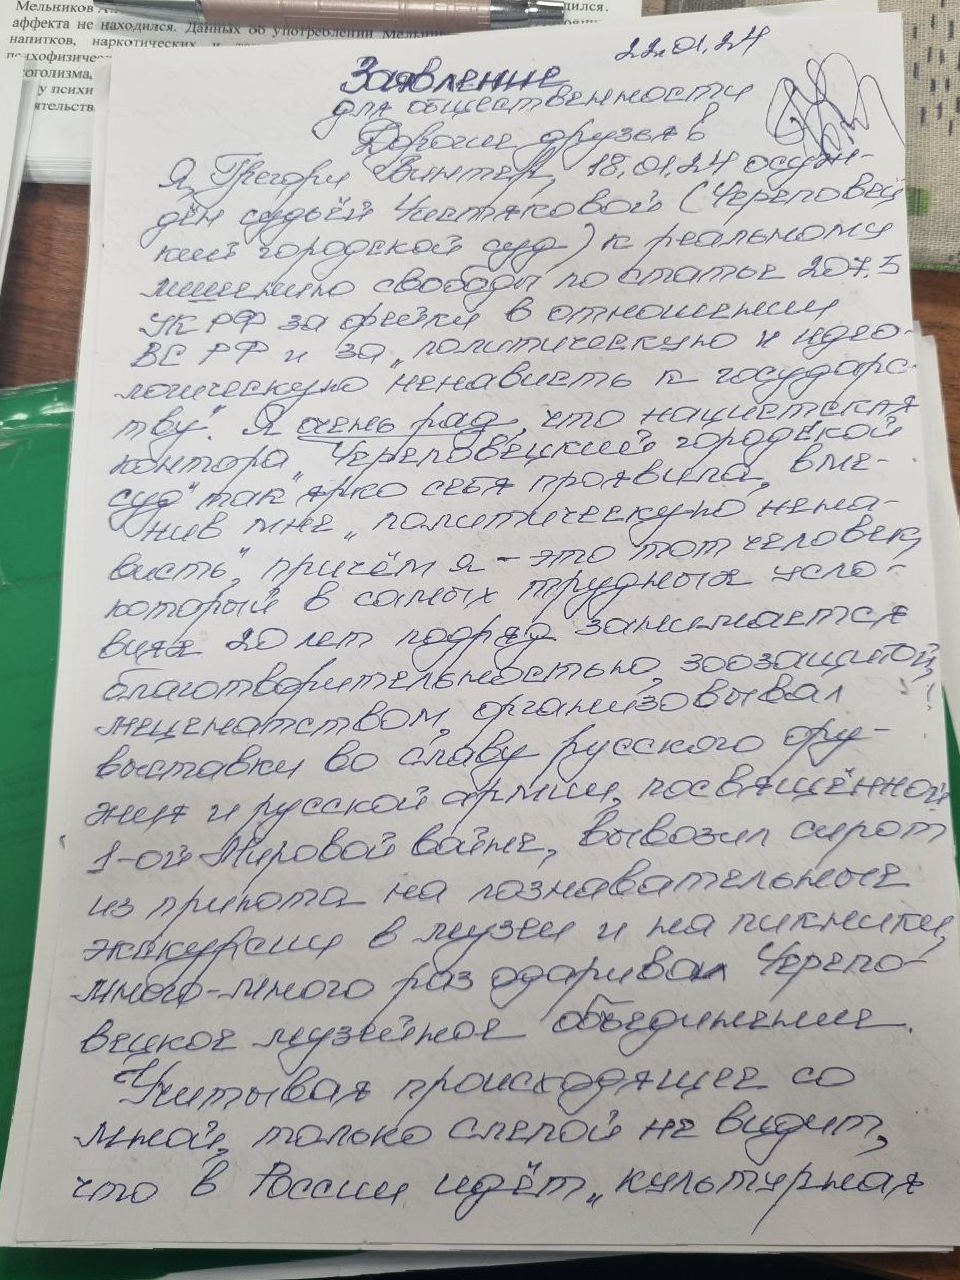 Мельников А.
аффекта не находился. Данных об употреблении Мельник
напитков, наркотических и
психофизичес
коголизма,
у психи
ятельств.
дился.
22.01.24
Заявление
для общественности
Дорогие друзья!
Я, Грегори Винтер, 18.01.24 осуж-
дён судьёй Чистяковой (Череповец
кий городской суд) к реальному
лишению свободы по статье 207.3
УК РФ за фейки в отношении
ВС РФ и за „политическую и идео-
логическую ненависть к государс-
тву". Я очень рад, что нацистская
контора „Череповецкий городской
суд" так ярко себя проявила, вме-
нив мне „политическую нена-
висть", причём я – это тот человек,
который в самых трудных усло-
виях 20 лет подряд занимается
благотворительностью, зоозащитой,
меценатством, организовывал
выставки во славу русского ору-
жия и русской армии, посвящённой
1-ой Мировой войне, вывозил сирот
из приюта на познавательные
экскурсии в музеи и на пикники,
много-много раз одаривал Черепо-
вецкое музейное объединение.
Учитывая происходящее со
мной, только слепой не видит,
что в России идёт „культурная